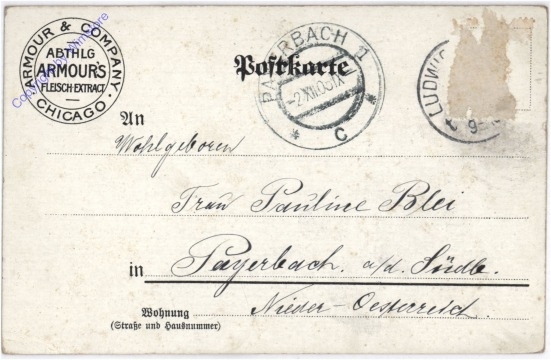 ARMOUR & COMPANY.
ABTHLG
ARMOUR'S
FLEISCH-EXTRACT
CHICAGO.
Postkarte
PAYERBACH 1
-2.XII.00
* C *
LUDWI
9-
An
Wohlgeboren
Frau Pauline Blei
in Payerbach a/d. Südb.
Nieder-Oesterreich
Wohnung
(Straße und Hausnummer)